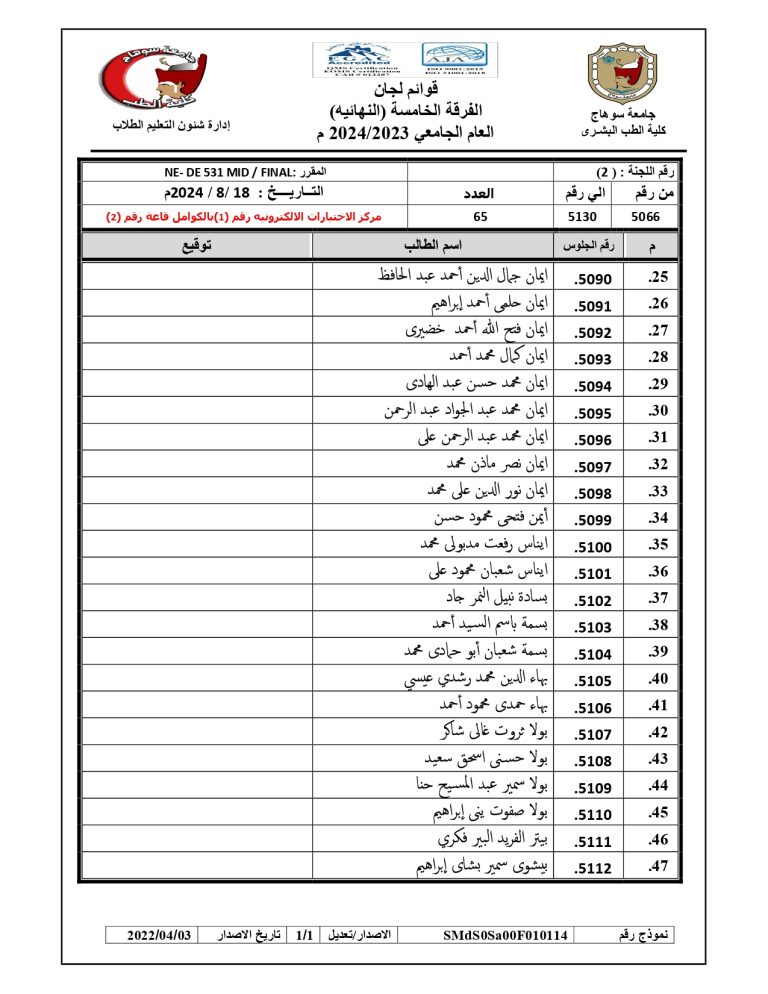 جامعة سوهاج
كلية الطب البشرى
EGAC
Accredited
QMS Certification
EOMS Certification
CAB # 012207
AJA
ISO 9001:2015
ISO 21001:2018
قوائم لجان
الفرقة الخامسة (النهائيه)
العام الجامعي 2024/2023 م
جامعة سوهاج
كلية الطب
إدارة شئون التعليم الطلاب
رقم اللجنة : ( 2) المقرر :NE- DE 531 MID / FINAL
من رقم الي رقم العدد التــاريـــخ : 18 /8 / 2024م
5066 5130 65 مركز الاختبارات الالكترونيه رقم (1)بالكوامل قاعة رقم (2)
م رقم الجلوس اسم الطالب توقيع
25. 5090. ايمان جمال الدين أحمد عبد الحافظ
26. 5091. ايمان حلمى أحمد إبراهيم
27. 5092. ايمان فتح الله أحمد خضيرى
28. 5093. ايمان كمال محمد أحمد
29. 5094. ايمان محمد حسن عبد الهادى
30. 5095. ايمان محمد عبد الجواد عبد الرحمن
31. 5096. ايمان محمد عبد الرحمن على
32. 5097. ايمان نصر ماذن محمد
33. 5098. ايمان نور الدين على محمد
34. 5099. أيمن فتحى محمود حسن
35. 5100. ايناس رفعت مدبولى محمد
36. 5101. ايناس شعبان محمود على
37. 5102. بسادة نبيل النمر جاد
38. 5103. بسمة باسم السيد أحمد
39. 5104. بسمة شعبان أبو حمادى محمد
40. 5105. بهاء الدين محمد رشدي عيسي
41. 5106. بهاء حمدى محمود أحمد
42. 5107. بولا ثروت غالى شاكر
43. 5108. بولا حسنى اسحق سعيد
44. 5109. بولا سمير عبد المسيح حنا
45. 5110. بولا صفوت ينى إبراهيم
46. 5111. بيتر الفريد البير فكري
47. 5112. بيشوى سمير بشاى إبراهيم
نموذج رقم SMdS0Sa00F010114 الاصدار/تعديل 1/1 تاريخ الاصدار 2022/04/03